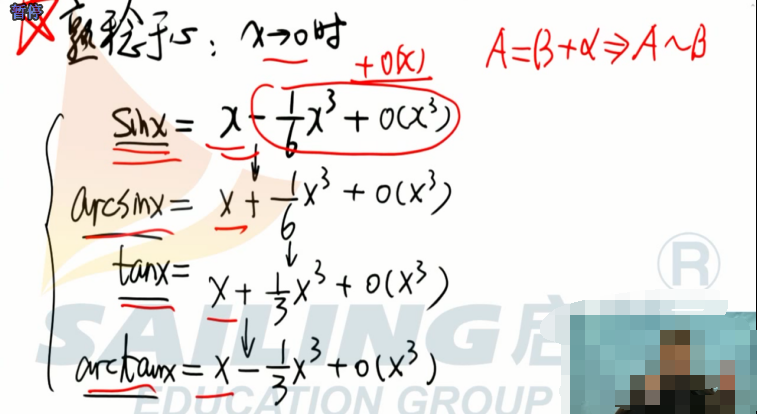 暂停
熟稔于心：x→0时
+o(x)
A=β+α⇒A~β
sinx = x - 1/6 x³ + o(x³)
arcsinx = x + 1/6 x³ + o(x³)
tanx = x + 1/3 x³ + o(x³)
arctanx = x - 1/3 x³ + o(x³)
®
SAILING 启
EDUCATION GROUP